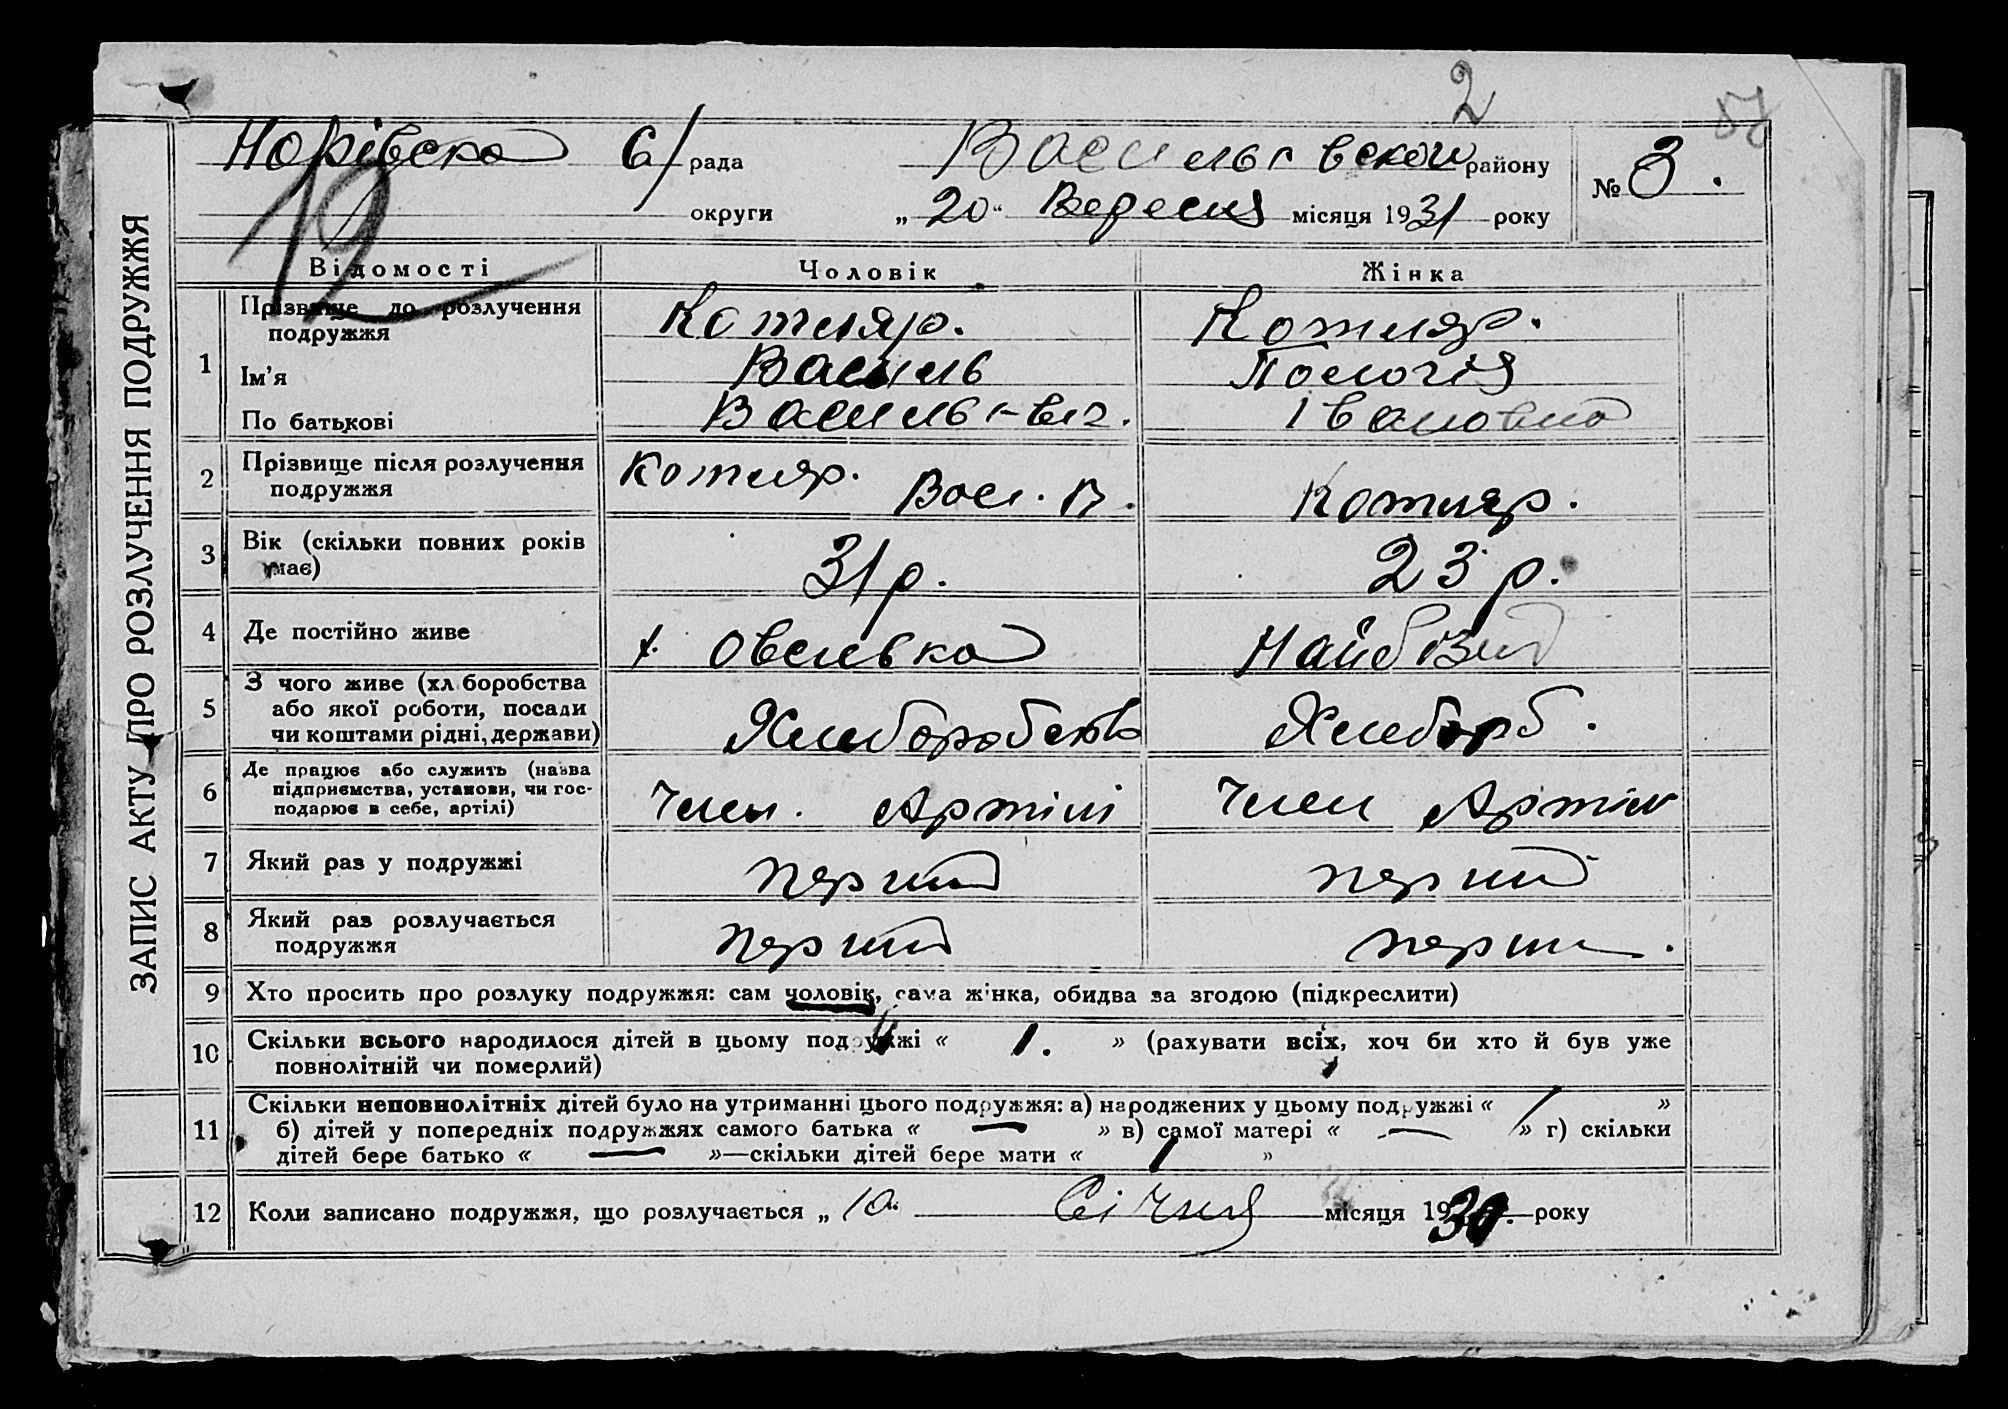 2 56
ЗАПИС АКТУ ПРО РОЗЛУЧЕННЯ ПОДРУЖЖЯ
Норівска С/рада Васильківской району № 3.
12
округи „20“ Вересня місяця 1931 року
Відомості Чоловік Жінка
1 Прізвище до розлучення подружжя Котляр. Котляр.
Ім'я Василь Пологія
По батькові Васильівич. Івановна
2 Прізвище після розлучення подружжя Котляр. Вас. В. Котляр.
3 Вік (скільки повних років має) 31 р. 23 р.
4 Де постійно живе х. Овсиевка
5 З чого живе (хліборобства або якої роботи, посади чи коштами рідні, держави) Хлиборобство Хлибороб.
6 Де працює або служить (назва підприємства, установи, чи господарює в себе, артілі) Член. Артілі Член Артіли
7 Який раз у подружжі перший перший
8 Який раз розлучається подружжя перший перши.
9 Хто просить про розлуку подружжя: сам чоловік, сама жінка, обидва за згодою (підкреслити)
10 Скільки всього народилося дітей в цьому подружжі « 1. » (рахувати всіх, хоч би хто й був уже
повнолітній чи померлий)
11 Скільки неповнолітніх дітей було на утриманні цього подружжя: а) народжених у цьому подружжі « / »
б) дітей у попередніх подружжях самого батька « — » в) самої матері « — » г) скільки
дітей бере батько « — »—скільки дітей бере мати « 1 »
12 Коли записано подружжя, що розлучається „10“ Січня місяця 1930. року